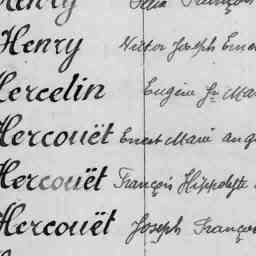 Henry
Henry Victor Joseph
Hercelin Eugène
Hercouët Ernest Marie
Hercouët François Hippolyte
Hercouët Joseph François